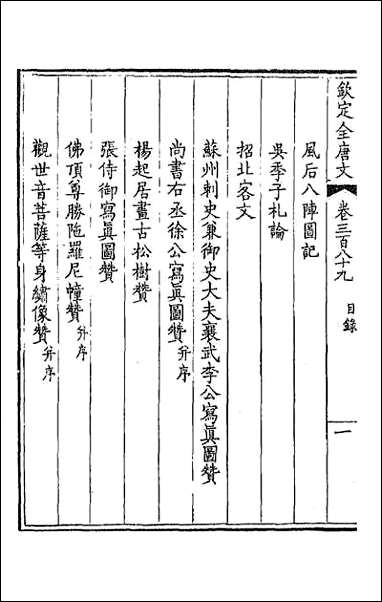 欽定全唐文 卷三百八十九 目録 一
風后八陣圖記
吳季子札論
招北客文
蘇州刺史兼御史大夫襄武李公寫眞圖贊
尚書右丞徐公寫眞圖贊并序
楊起居畫古松樹贊
張侍御寫眞圖贊
佛頂尊勝陁羅尼幢贊并序
觀世音菩薩等身繡像贊并序